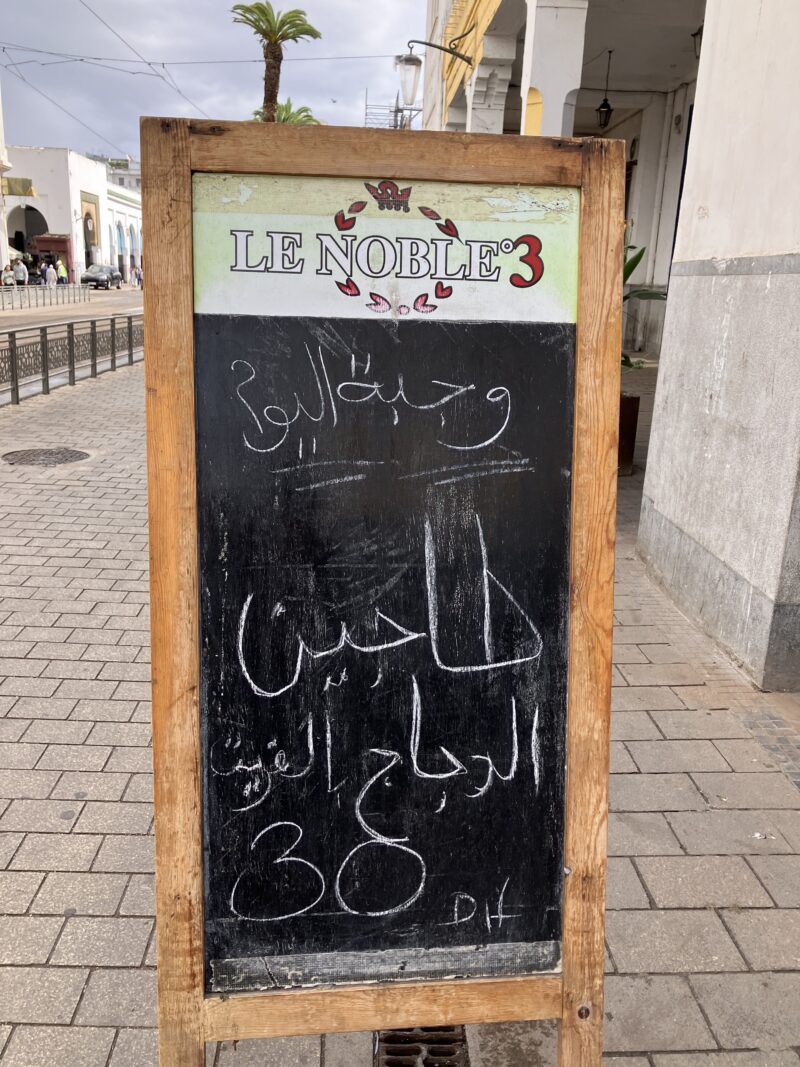 LE NOBLE°3
وجبة اليوم
طاجين
الدجاج الفريت
30 DH